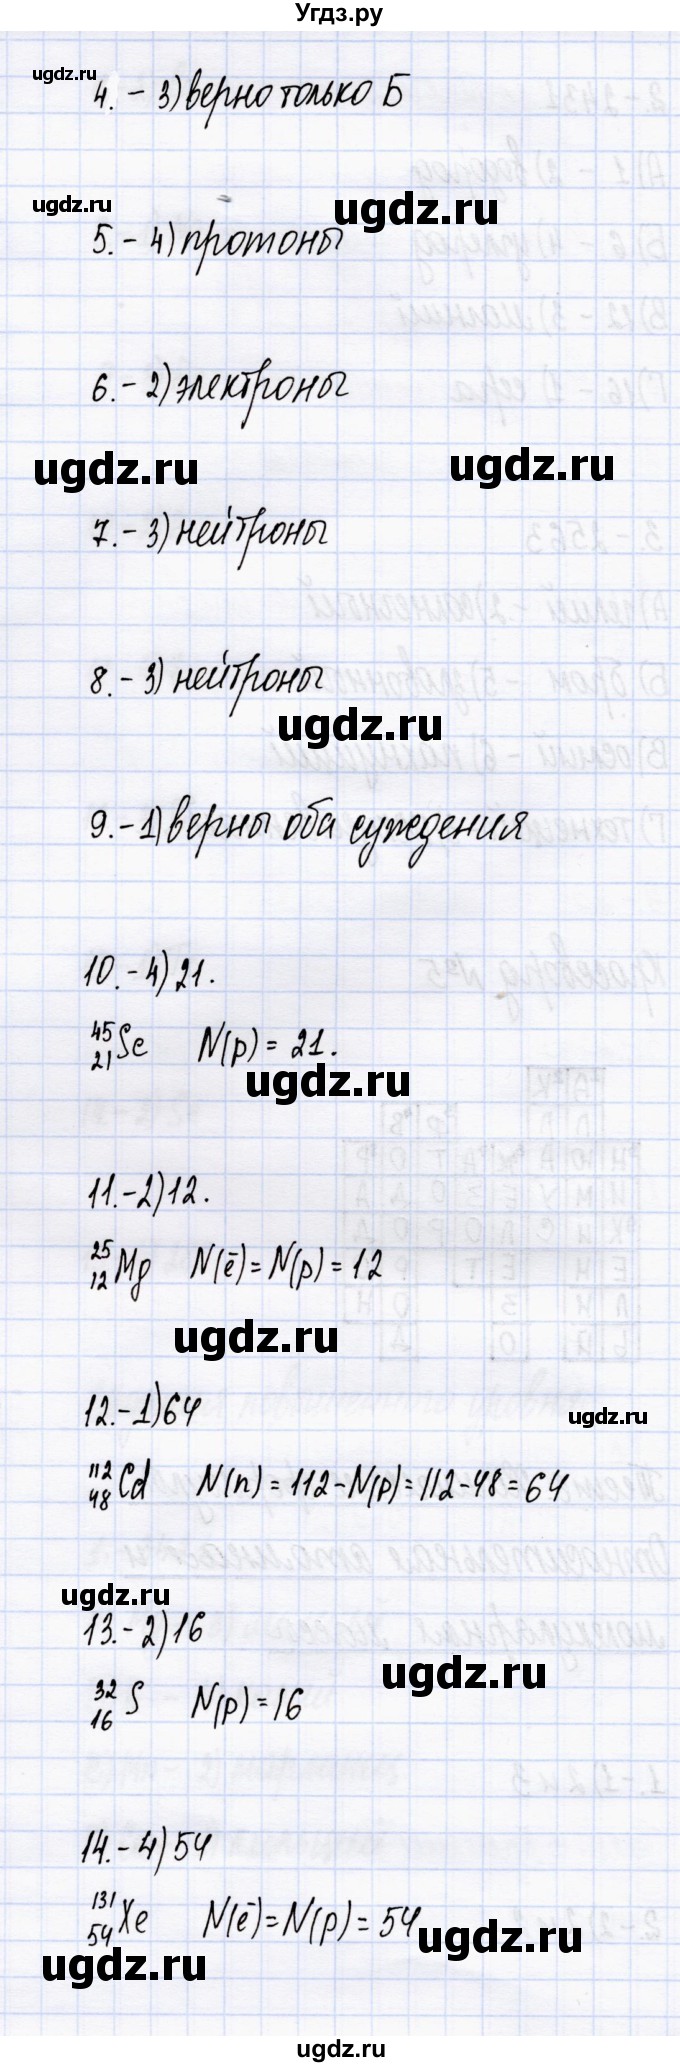 Угдз.ру
ugdz.ru
4. - 3) верно только Б
ugdz.ru
ugdz.ru
5. - 4) протоны
6. - 2) электроны
ugdz.ru
ugdz.ru
7. - 3) нейтроны
8. - 3) нейтроны
ugdz.ru
9. - 1) верны оба суждения
10. - 4) 21.
⁴⁵₂₁Sc N(p) = 21.
ugdz.ru
11. - 2) 12.
²⁵₁₂Mg N(ē) = N(p) = 12
ugdz.ru
12. - 1) 64
ugdz.ru
¹¹²₄₈Cd N(n) = 112 - N(p) = 112 - 48 = 64
ugdz.ru
13. - 2) 16
ugdz.ru
³²₁₆S N(p) = 16
14. - 4) 54
¹³¹₅₄Xe N(ē) = N(p) = 54
ugdz.ru
ugdz.ru
ugdz.ru